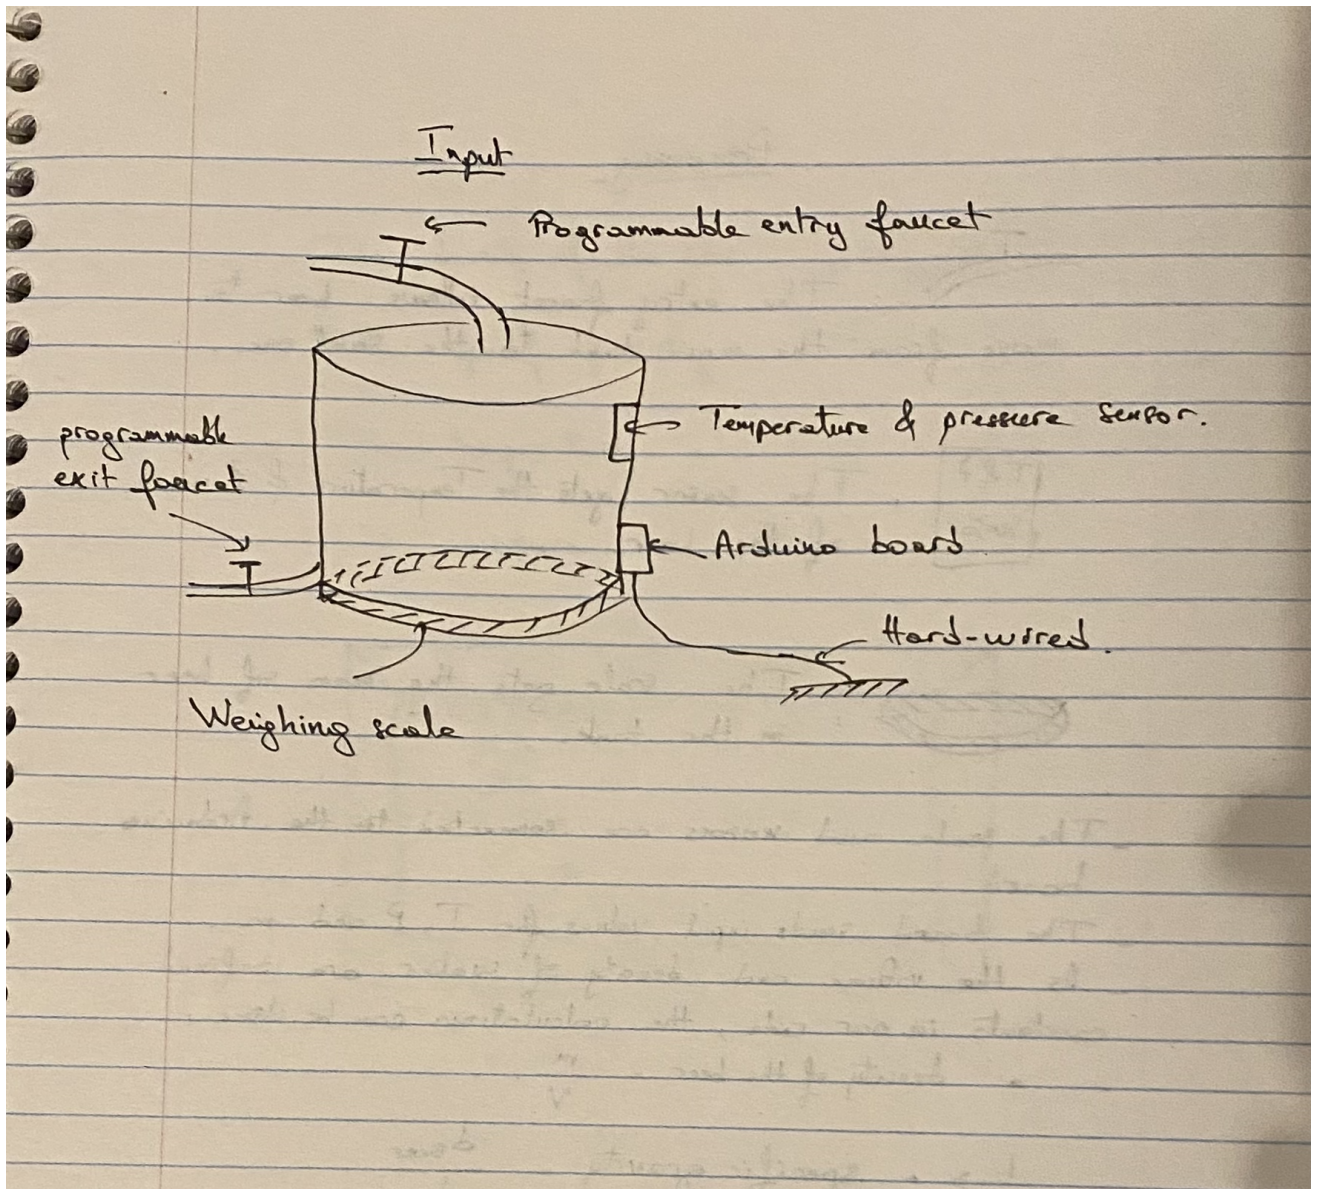 Input
Programmable entry faucet
Temperature & pressure sensor.
programmable
exit faucet
Arduino board
Hard-wired.
Weighing scale